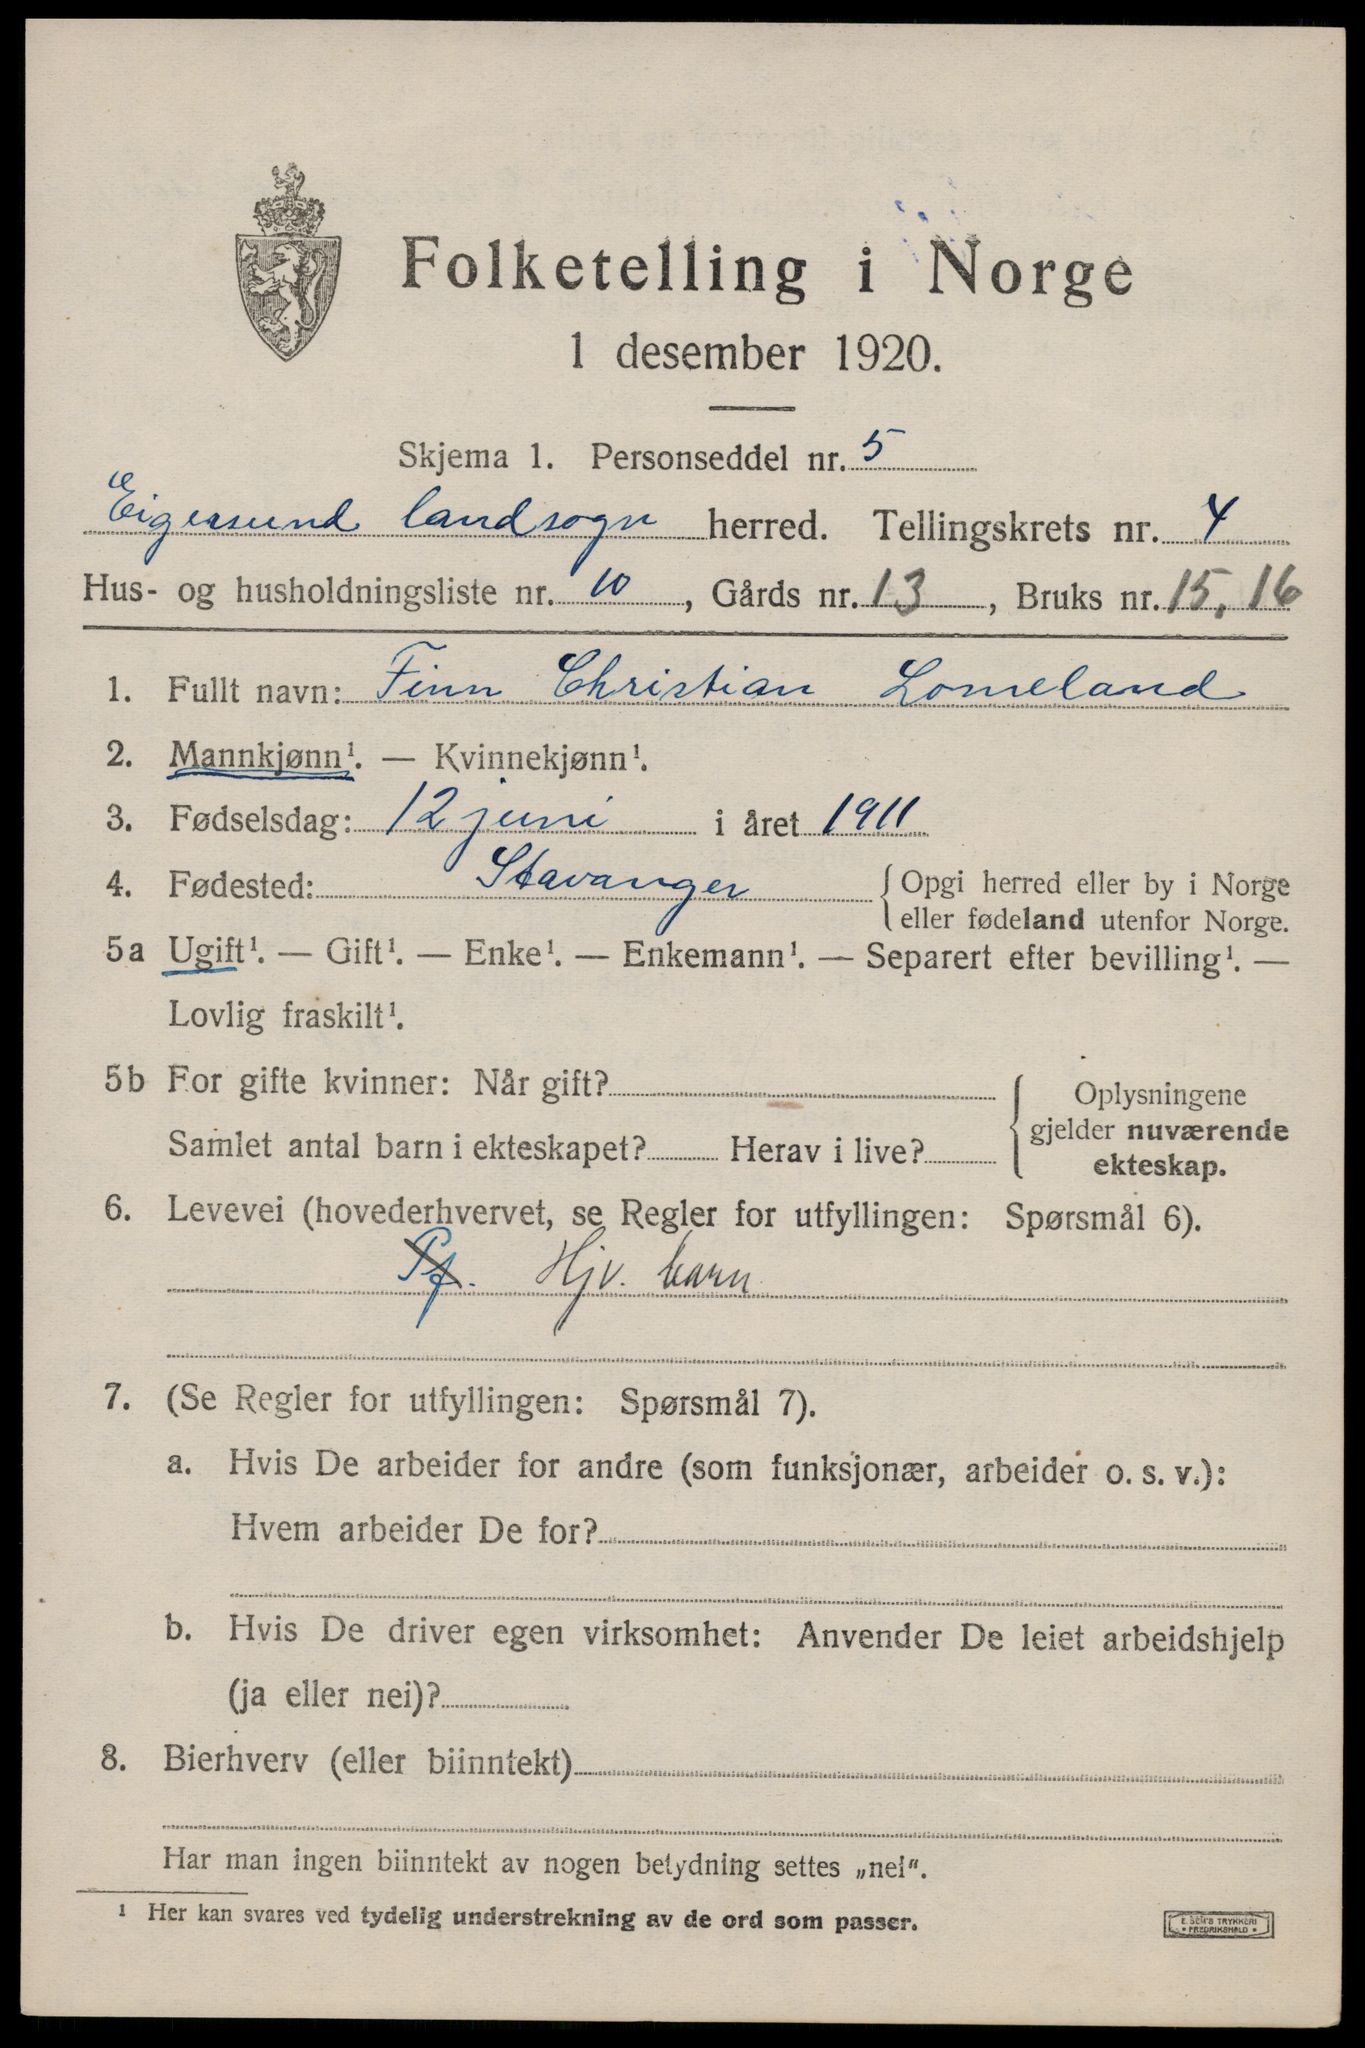 Folketelling i Norge
1 desember 1920.
Skjema 1. Personseddel nr. 5
Eigersund landsogn herred. Tellingskrets nr. 4
Hus- og husholdningsliste nr. 10, Gårds nr. 13, Bruks nr. 15, 16
1. Fullt navn: Finn Christian Lomeland
2. Mannkjønn¹. — Kvinnekjønn¹.
3. Fødselsdag: 12 juni i året 1911
4. Fødested: Stavanger { Opgi herred eller by i Norge
eller fødeland utenfor Norge.
5a Ugift¹. — Gift¹. — Enke¹. — Enkemann¹. — Separert efter bevilling¹. —
Lovlig fraskilt¹.
5b For gifte kvinner: Når gift? { Oplysningene
gjelder nuværende
Samlet antal barn i ekteskapet? Herav i live?
ekteskap.
6. Levevei (hovederhvervet, se Regler for utfyllingen: Spørsmål 6).
Pf. Hjv. barn
7. (Se Regler for utfyllingen: Spørsmål 7).
a. Hvis De arbeider for andre (som funksjonær, arbeider o. s. v.):
Hvem arbeider De for?
b. Hvis De driver egen virksomhet: Anvender De leiet arbeidshjelp
(ja eller nei)?
8. Bierhverv (eller biinntekt)
Har man ingen biinntekt av nogen betydning settes „nei“.
¹ Her kan svares ved tydelig understrekning av de ord som passer.
E. SEM'S TRYKKERI
FREDRIKSHALD